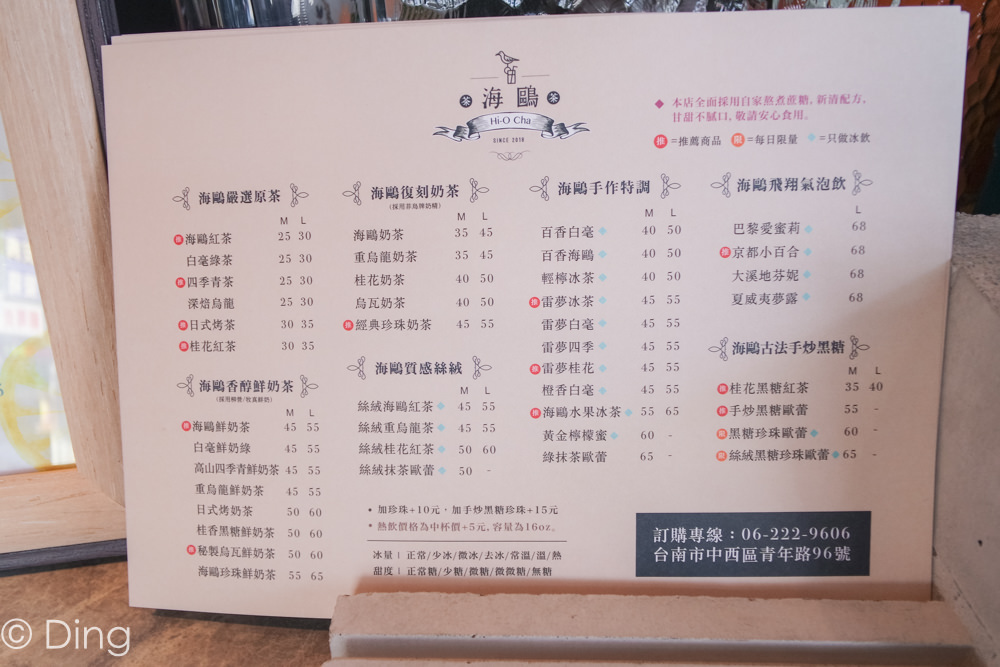 茶 海鷗 茶
Hi-O Cha
SINCE 2018
◆ 本店全面採用自家熬煮蔗糖, 新清配方,
甘甜不膩口, 敬請安心食用。
推=推薦商品 限=每日限量 ◆=只做冰飲
海鷗嚴選原茶
M L
推海鷗紅茶 25 30
白毫綠茶 25 30
推四季青茶 25 30
深焙烏龍 25 30
推日式烤茶 30 35
推桂花紅茶 30 35
海鷗香醇鮮奶茶
M L
推海鷗鮮奶茶 45 55
白毫鮮奶綠 45 55
高山四季青鮮奶茶 45 55
重烏龍鮮奶茶 45 55
日式烤奶茶 50 60
桂香黑糖鮮奶茶 50 60
推秘製烏瓦鮮奶茶 50 60
海鷗珍珠鮮奶茶 55 65
海鷗復刻奶茶
M L
海鷗奶茶 35 45
重烏龍奶茶 35 45
桂花奶茶 40 50
烏瓦奶茶 40 50
推經典珍珠奶茶 45 55
海鷗質感絲絨
M L
絲絨海鷗紅茶◆ 45 55
絲絨重烏龍茶◆ 45 55
絲絨桂花紅茶◆ 50 60
絲絨抹茶歐蕾◆ 50 -
海鷗手作特調
M L
百香白毫◆ 40 50
百香海鷗◆ 40 50
輕檸冰茶◆ 40 50
推雷夢冰茶◆ 45 55
雷夢白毫◆ 45 55
雷夢四季◆ 45 55
推雷夢桂花◆ 45 55
橙香白毫◆ 45 55
推海鷗水果冰茶◆ 55 65
黃金檸檬蜜◆ 60 -
綠抹茶歐蕾 65 -
海鷗飛翔氣泡飲
L
巴黎愛蜜莉◆ 68
推京都小百合◆ 68
大溪地芬妮◆ 68
夏威夷夢露◆ 68
海鷗古法手炒黑糖
M L
推桂花黑糖紅茶 35 40
推手炒黑糖歐蕾 55 -
限黑糖珍珠歐蕾◆ 60 -
限絲絨黑糖珍珠歐蕾◆ 65 -
◆ 加珍珠+10元，加手炒黑糖珍珠+15元
* 熱飲價格為中杯價+5元, 容量為16oz。
冰量 | 正常/少冰/微冰/去冰/常溫/溫/熱
甜度 | 正常糖/少糖/微糖/微微糖/無糖
訂購專線：06-222-9606
台南市中西區青年路96號
© Ding